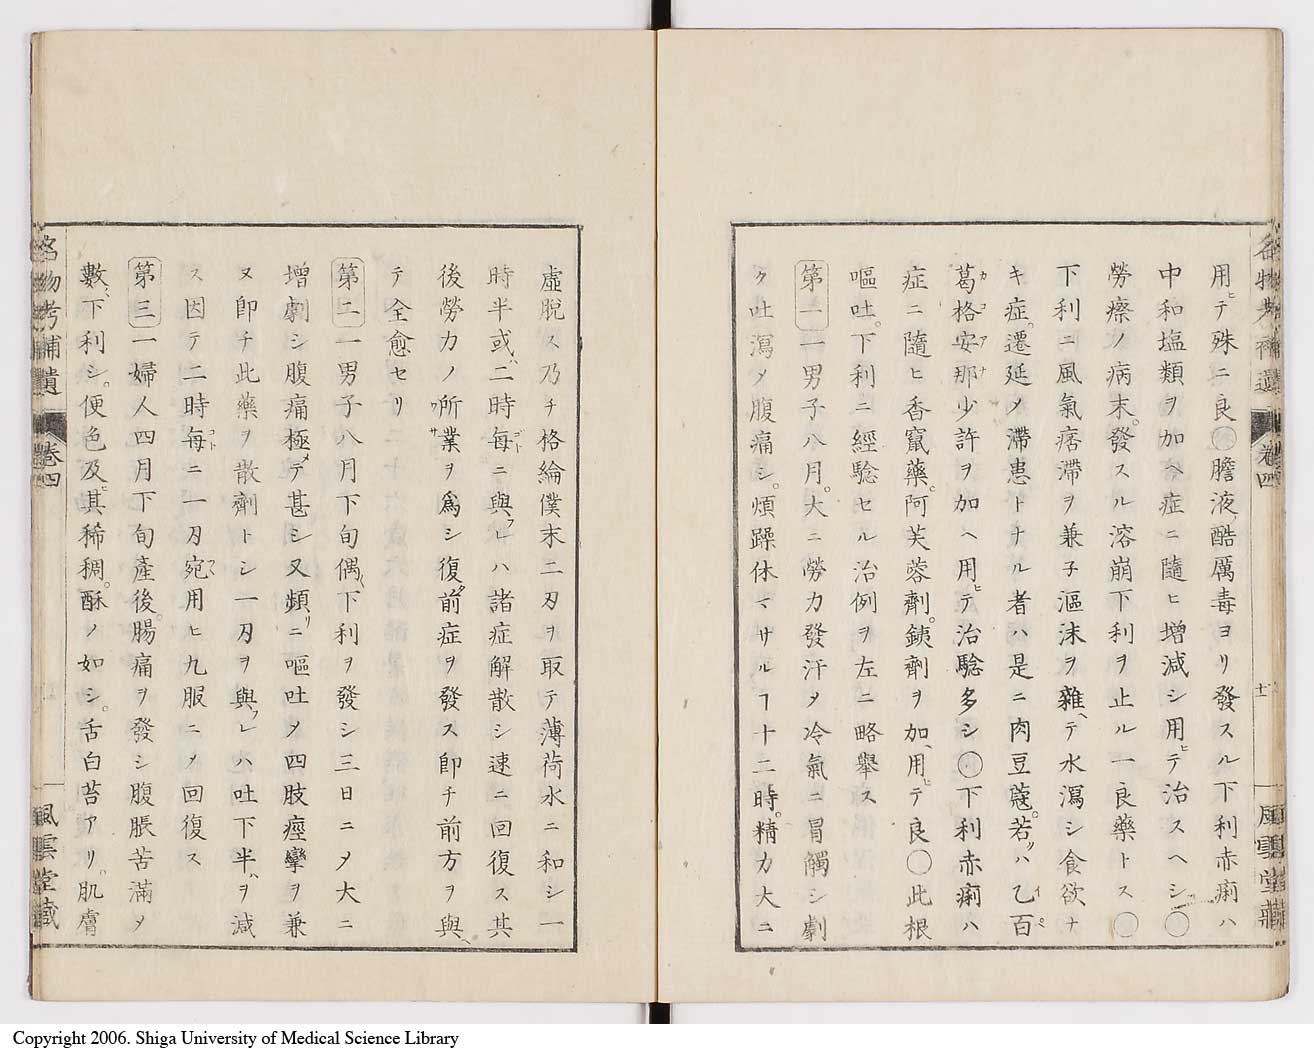 用ヒテ殊ニ良○膽液酷厲毒ヨリ發スル下利赤痢ハ
中和塩類ヲ加ヘ症ニ隨ヒ增減シ用ヒテ治スヘシ○
勞瘵ノ病末。發スル溶崩下利ヲ止ル一良藥トス○
下利ニ風氣痞滯ヲ兼子漚沫ヲ雜ヘテ水瀉シ食欲ナ
キ症。遷延ノ滯患トナル者ハ是ニ肉豆蔻。若クハ乙百
葛格安那少許ヲ加ヘ用ヒテ治驗多シ○下利赤痢ハ
カコアナ
症ニ隨ヒ香竄藥。阿芙蓉劑。鋏劑ヲ加ヘ用ヒテ良○此根
嘔吐。下利ニ經驗セル治例ヲ左ニ略舉ス
第一 一男子八月。大ニ勞力發汗メ冷氣ニ冒觸シ劇
ク吐瀉メ腹痛シ。煩躁休マサルヿ十二時。精力大ニ
名物考補遺 卷四 十一 風雲堂藏
虛脫ス乃チ格綸僕末二刄ヲ取テ薄荷水ニ和シ一
時半或ハ二時每ニ與フレハ諸症解散シ速ニ回復ス其
後勞力ノ所業ヲ爲シ復タ前症ヲ發ス卽チ前方ヲ與ヘ
テ全愈セリ
第二 一男子八月下旬偶〻下利ヲ發シ三日ニメ大ニ
增劇シ腹痛極メテ甚シ又頻リニ嘔吐メ四肢瘂攣ヲ兼
ヌ卽チ此藥ヲ散劑トシ一刄ヲ與フレハ吐下半ハヲ減
ス因テ二時每ニ一刄宛用ヒ九服ニメ回復ス
第三 一婦人四月下旬產後。腸痛ヲ發シ腹脹苦滿メ
數〻下利シ。便色及ヒ其稀稠。酥ノ如シ。舌白苔アリ。肌膚
名物考補遺 卷四 風雲堂藏
Copyright 2006. Shiga University of Medical Science Library